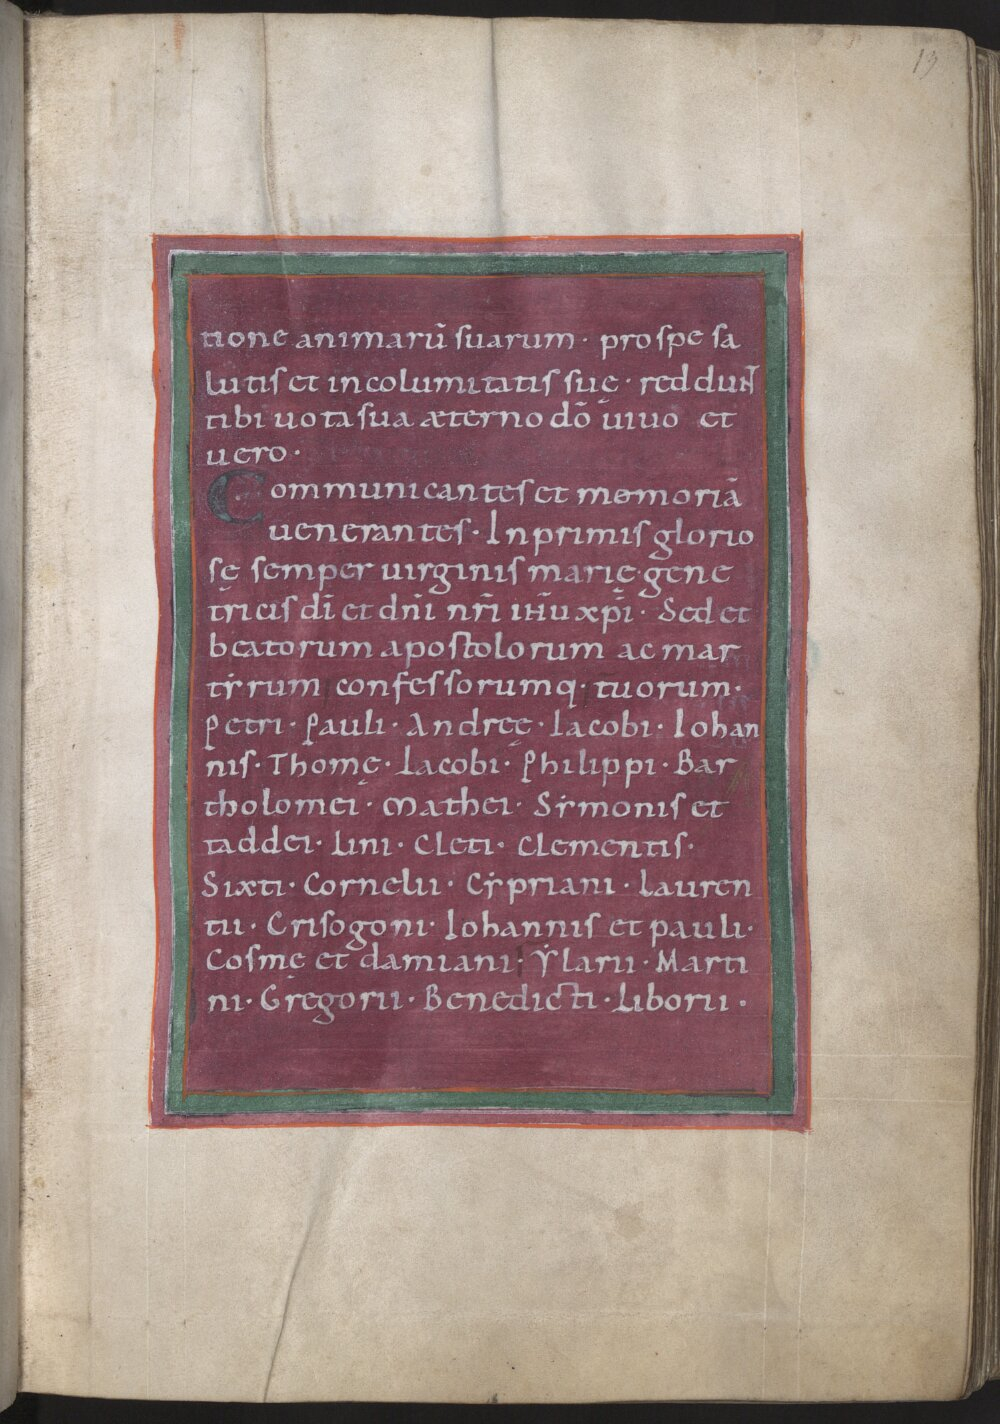 19
tione animarū suarum · pro spe sa
lutis et incolumitatis suę · reddunt
tibi uota sua æterno dō uiuo et
uero ·
Communicantes et memoriā
uenerantes · Inprimis glorio
sę semper uirginis marię gene
tricis dī et dn̄i nr̄i ih̄u xp̄i · Sed et
beatorum apostolorum ac mar
tẏrum confessorumq · tuorum ·
Petri · Pauli · Andreę · Iacobi · Iohan
nis · Thomę · Iacobi · Philippi · Bar
tholomei · Mathei · Sẏmonis et
taddei · Lini · Cleti · Clementis ·
Sixti · Cornelii · Cẏpriani · Lauren
tii · Crisogoni · Iohannis et pauli ·
Cosmę et damiani · Ẏlarii · Marti
ni · Gregorii · Benedicti · Liborii ·